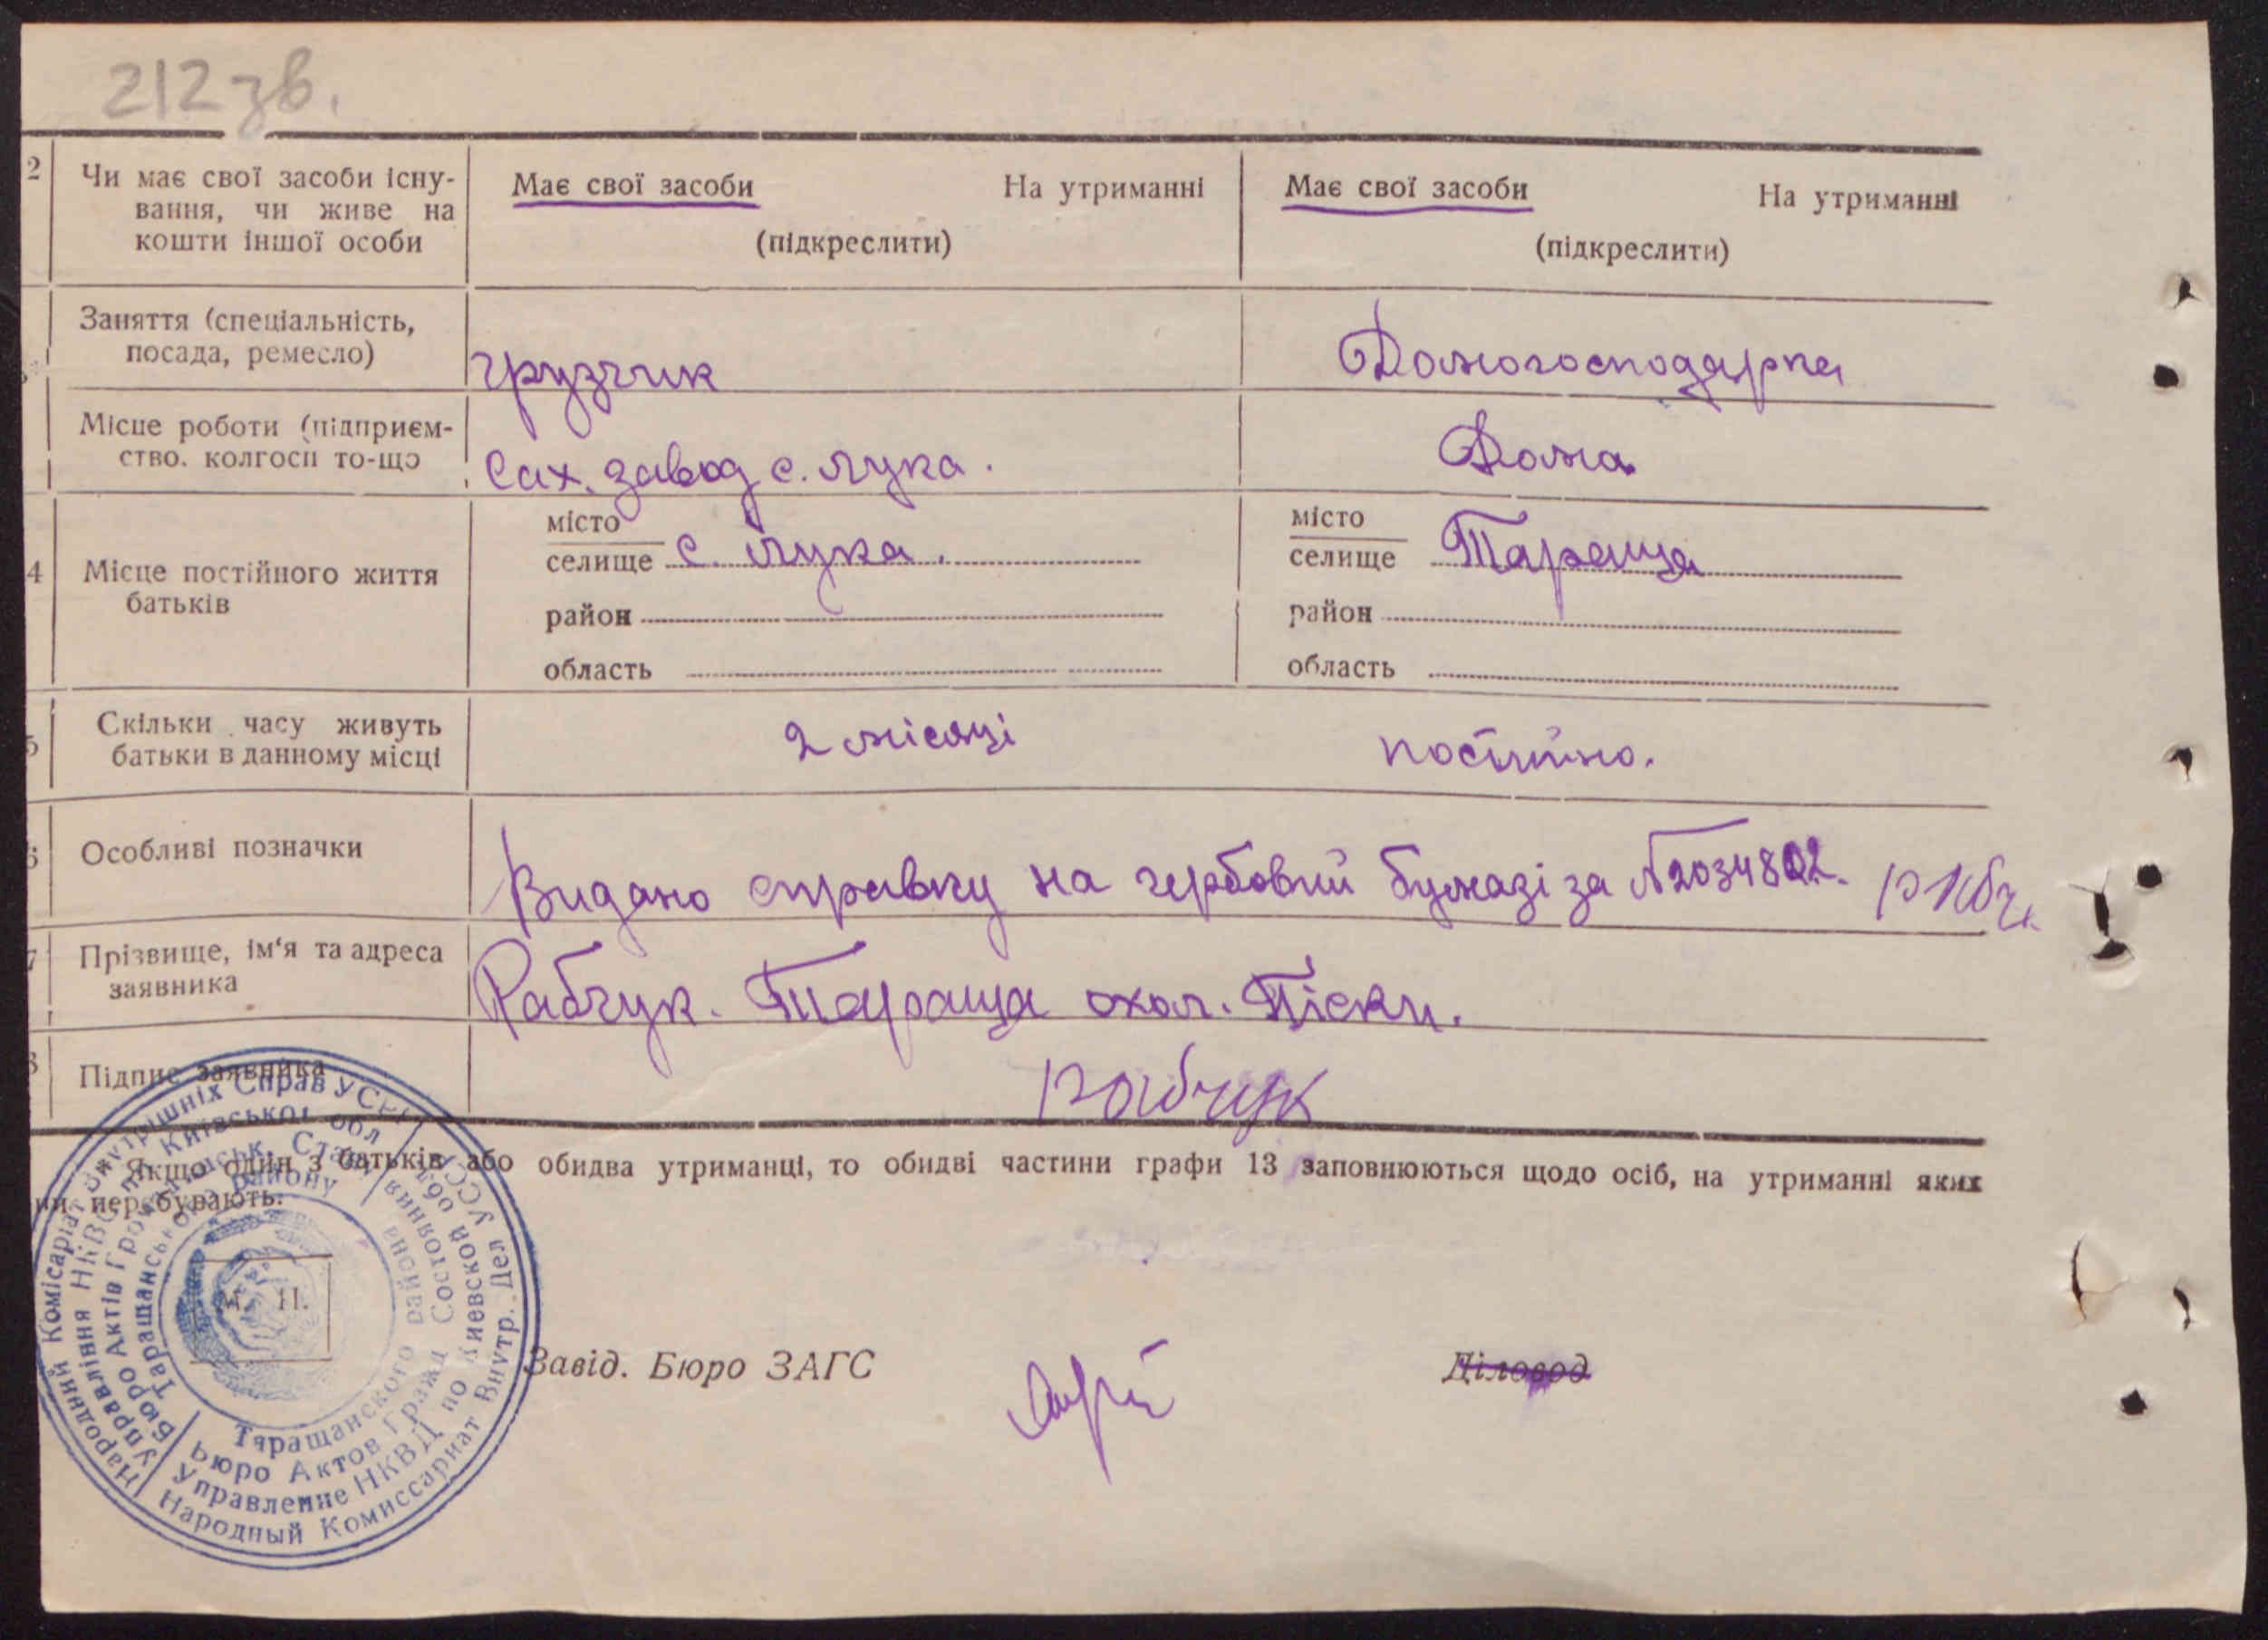 212 зв.
2 Чи має свої засоби існу- Має свої засоби На утриманні Має свої засоби На утриманні
вання, чи живе на
кошти іншої особи (підкреслити) (підкреслити)
Заняття (спеціальність,
посада, ремесло) грузчик Домогосподарка
Місце роботи (підприєм-
ство, колгосп то-що Сах. завод с. Лука. Дома
4 Місце постійного життя
батьків
місто
селище с. Лука.
район
область
місто
селище Тараща
район
область
5 Скільки часу живуть
батьки в данному місці 2 місяці постійно.
6 Особливі позначки Видано справку на гербовій бумазі за №2034802.
7 Прізвище, ім'я та адреса
заявника Рабчук. Тараща окол. Піски.
8 Підпис заявника Рабчук
Якщо один з батьків або обидва утриманці, то обидві частини графи 13 заповнюються щодо осіб, на утриманні яких
ни перебувають.
М. П.
Завід. Бюро ЗАГС Діловод
Народний Комісаріат Внутрішніх Справ УСРР
Управління НКВС по Київській обл
Бюро Актів Громадянськ. Стану
Таращанського району
Таращанского района
Бюро Актов Гражд Состояния
Управление НКВД по Киевской обл
Народный Комиссариат Внутр. Дел УССР